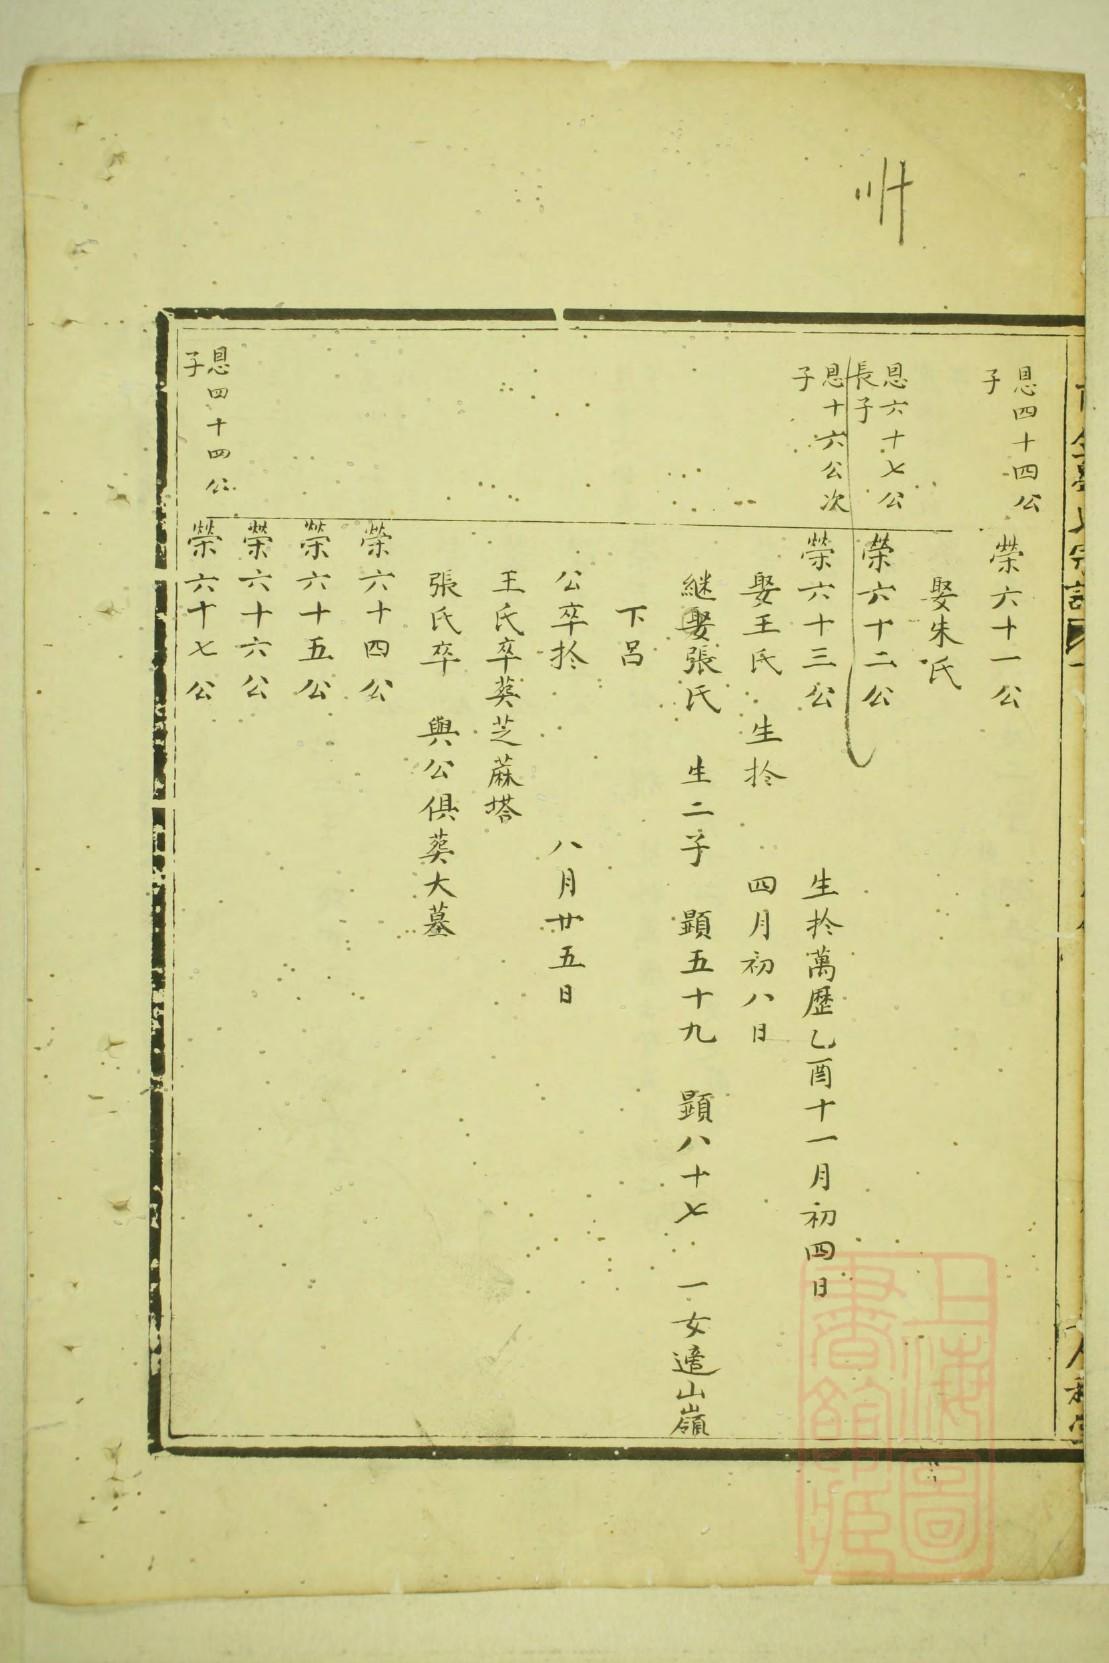 恩四十四公
子
榮六十一公
娶朱氏
恩六十七公
長子
榮六十二公
恩十六公次
子
榮六十三公 生扵萬歷乙酉十一月初四日
娶王氏 生扵 四月初八日
継娶張氏 生二子 顕五十九 顕八十七 一女適山嶺
下呂
公卒扵 八月廿五日
王氏卒葬芝蔴塔
張氏卒 與公俱葬大墓
榮六十四公
榮六十五公
榮六十六公
恩四十四公
子
榮六十七公
上海圖
書館藏